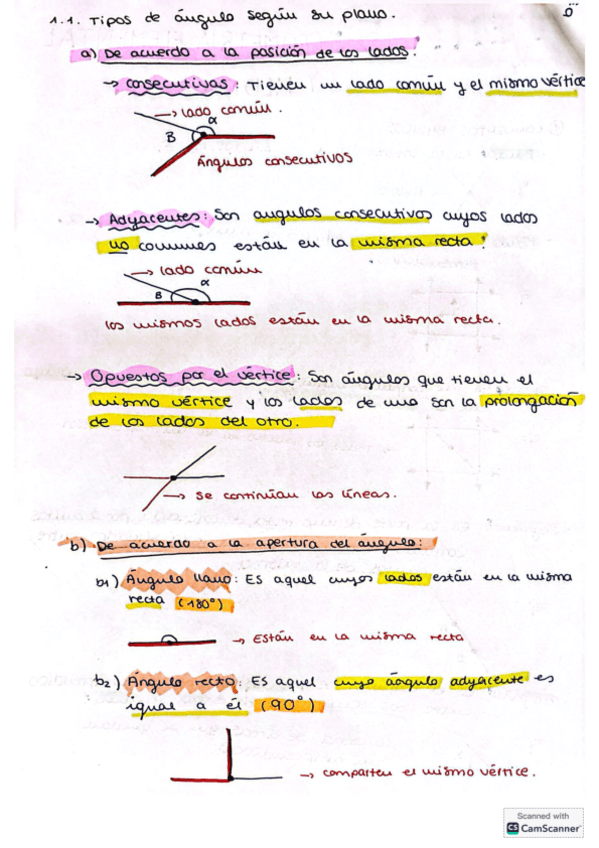 1.1. Tipos de ángulo según su plano.
a) De acuerdo a la posición de los lados:
→ Consecutivos: Tienen un lado común y el mismo vértice
→ lado común.
α
B
Ángulos consecutivos
→ Adyacentes: Son angulos consecutivos cuyos lados
no comunes están en la misma recta:
→ lado común
α
B
los mismos lados están en la misma recta.
→ Opuestos por el vértice: Son ángulos que tienen el
mismo vértice y los lados de uno son la prolongación
de los lados del otro.
→ Se continúan las líneas.
b) De acuerdo a la apertura del ángulo:
b1) Ángulo llano: Es aquel cuyos lados están en la misma
recta (180°)
→ Están en la misma recta
b2) Ángulo recto: Es aquel cuyo ángulo adyacente es
igual a él (90°)
→ comparten el mismo vértice.
Scanned with
CS CamScanner